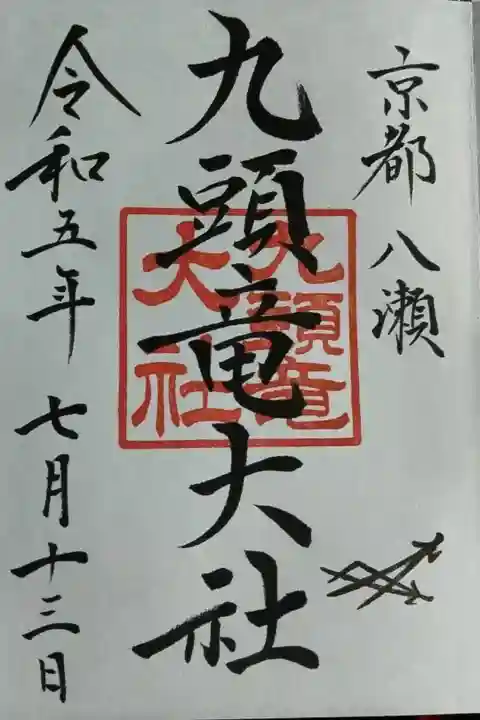 京都 八瀬
九頭竜大社
九頭竜
大社
令和五年 七月十三日